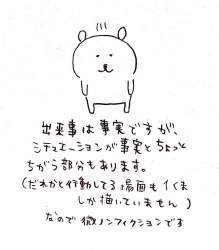 出来事は事実ですが、
シチュエーションが事実とちょっと
ちがう部分もあります。
(だれかと行動してる場面も1くま
しか描いていません)
なので微ノンフィクションでる